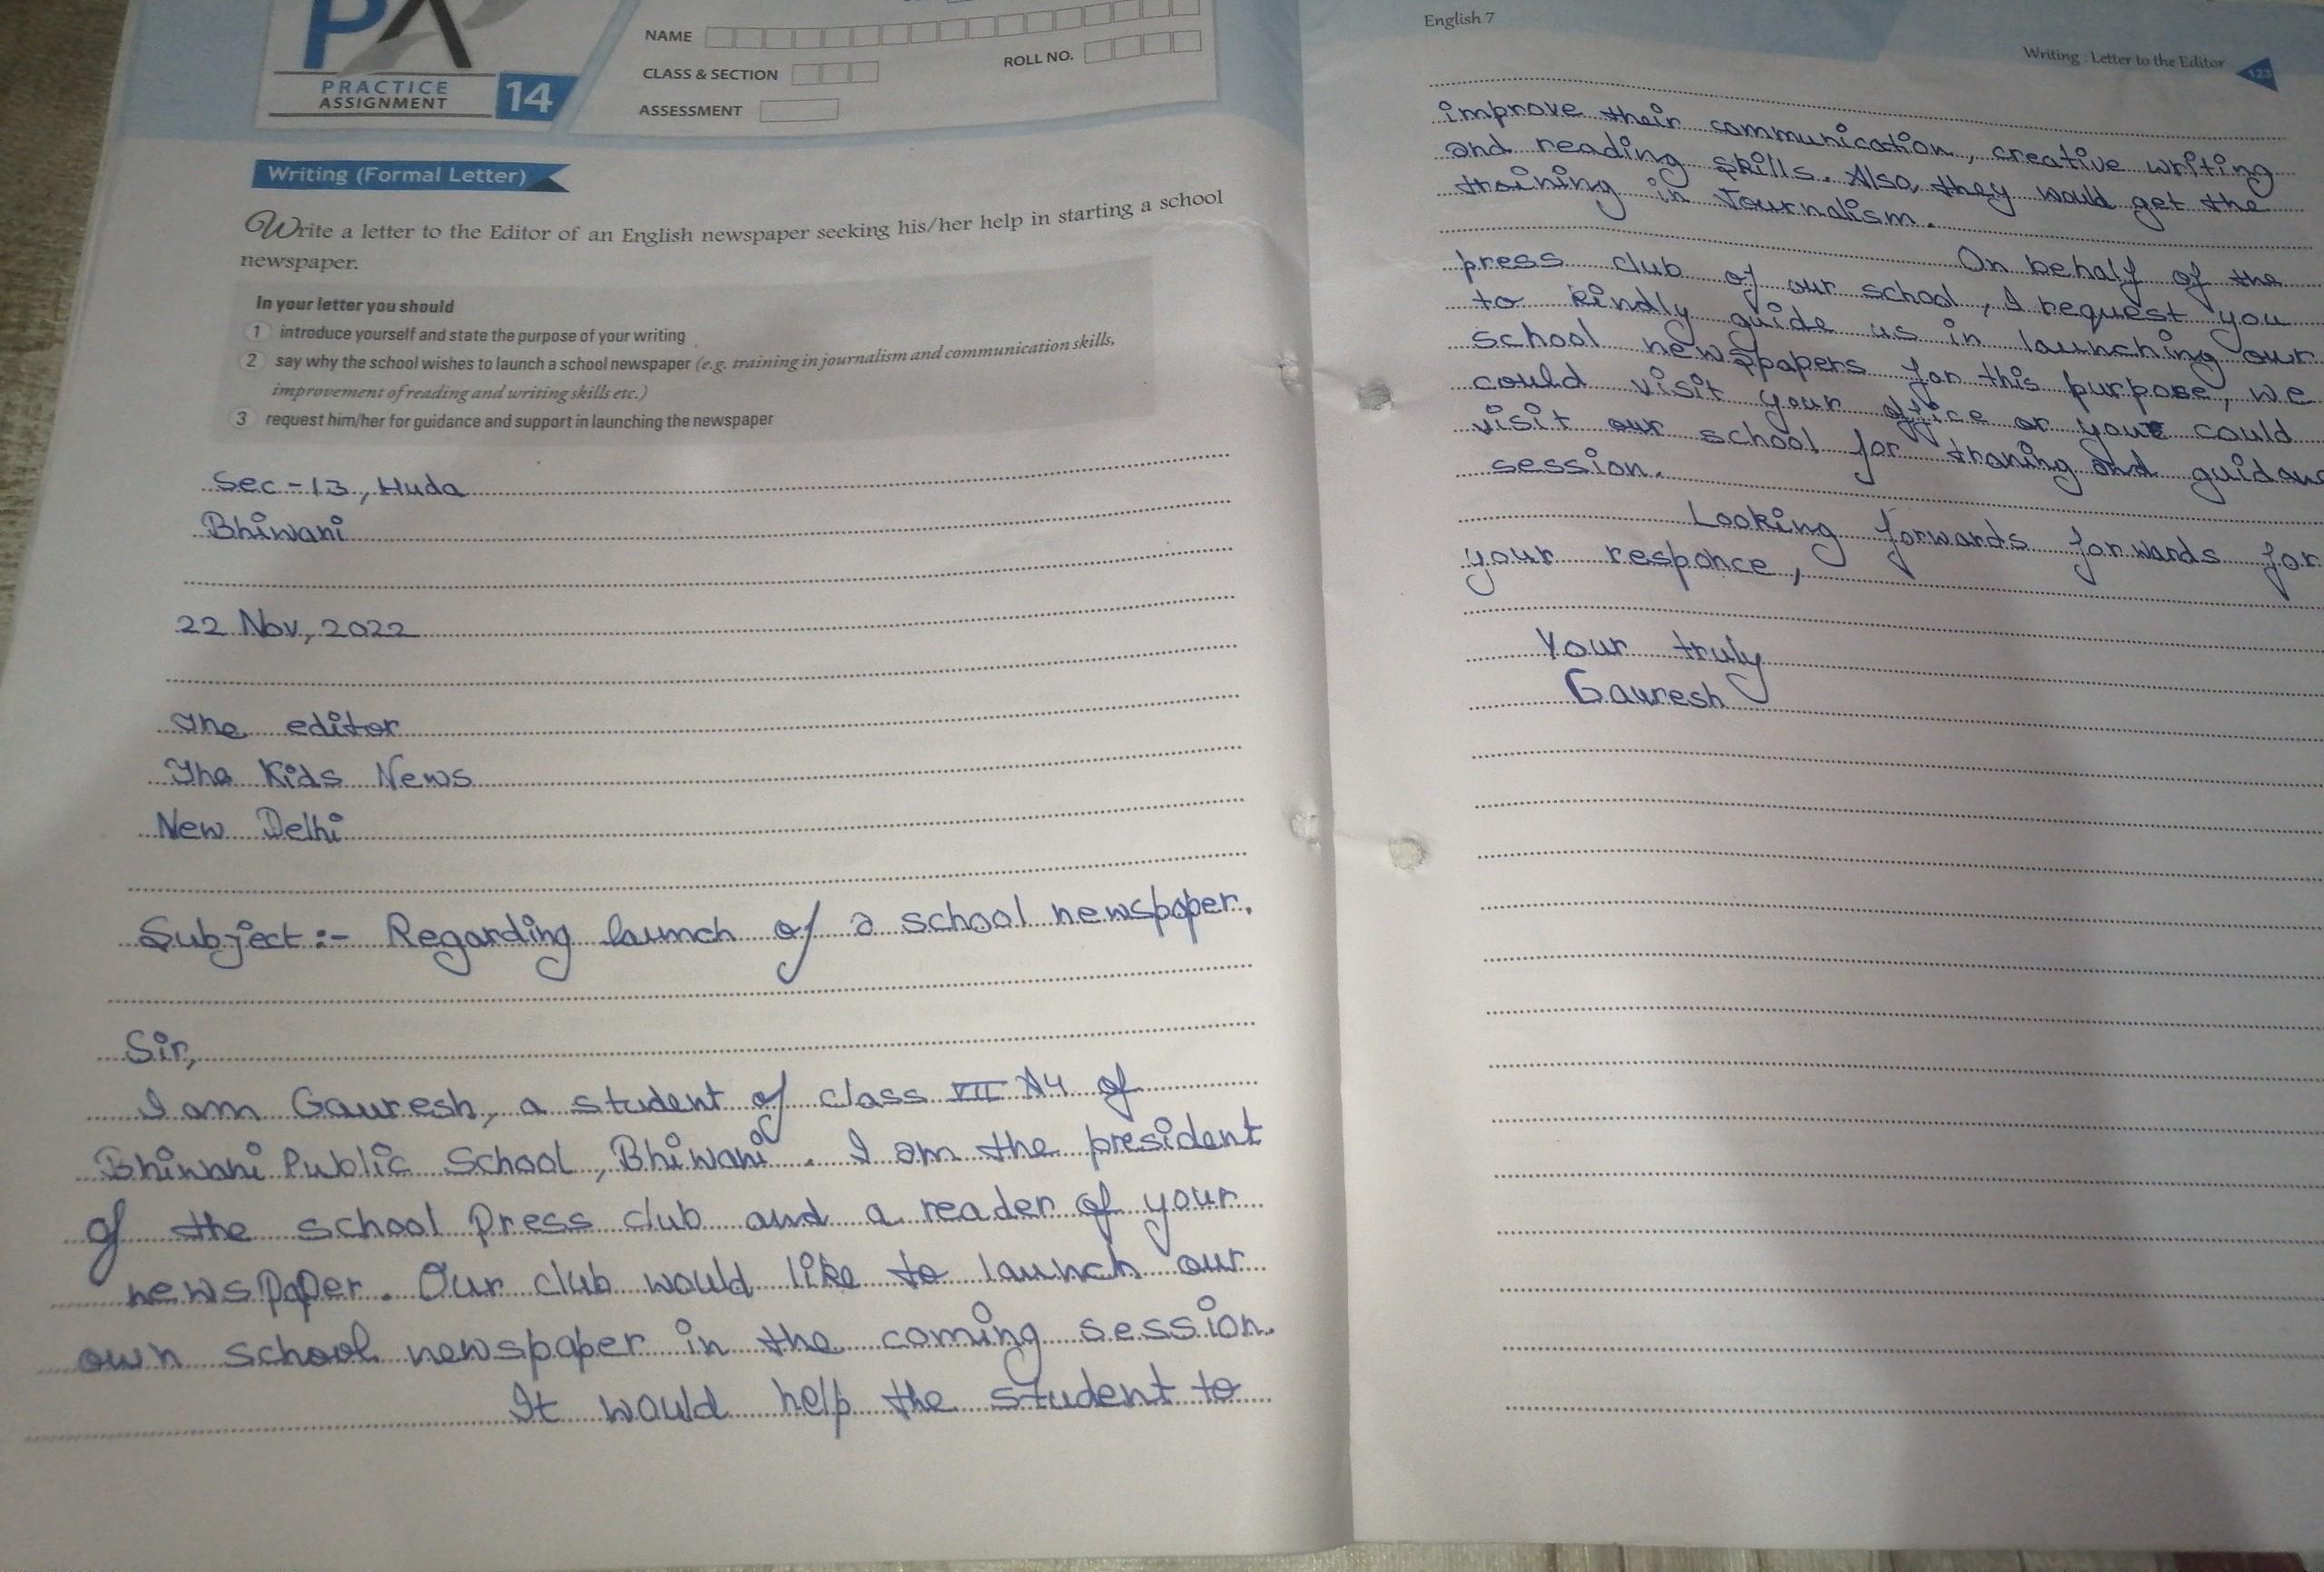 PA
PRACTICE
ASSIGNMENT 14
NAME
CLASS & SECTION
ROLL NO.
ASSESSMENT
Writing (Formal Letter)
Write a letter to the Editor of an English newspaper seeking his/her help in starting a school
newspaper.
In your letter you should
1 introduce yourself and state the purpose of your writing
2 say why the school wishes to launch a school newspaper (e.g. training in journalism and communication skills,
improvement of reading and writing skills etc.)
3 request him/her for guidance and support in launching the newspaper
Sec-13, Huda
Bhiwani
22 Nov, 2022
The editor
The Kids News
New Delhi
Subject:- Regarding launch of a school newspaper.
Sir,
I am Gauresh, a student of class VII A4 of
Bhiwani Public School, Bhiwani. I am the president
of the school Press club and a reader of your
newspaper. Our club would like to launch our
own school newspaper in the coming session.
It would help the student to
English 7
Writing : Letter to the Editor 123
improve their communication, creative writing
and reading skills. Also, they would get the
training in Journalism.
On behalf of the
press club of our school, I request you
to kindly guide us in launching our
school newspapers for this purpose, we
could visit your office or you could
visit our school for traning and guidanc
session.
Looking forwards forwards for
your responce,
Your truly
Gauresh